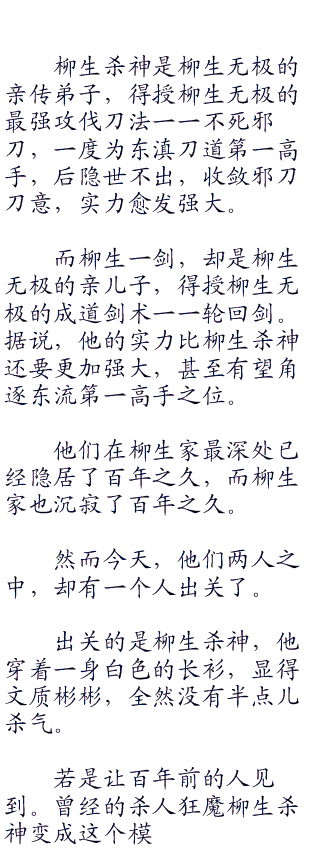 柳生杀神是柳生无极的
亲传弟子，得授柳生无极的
最强攻伐刀法一一不死邪
刀，一度为东滇刀道第一高
手，后隐世不出，收敛邪刀
刀意，实力愈发强大。
而柳生一剑，却是柳生
无极的亲儿子，得授柳生无
极的成道剑术一一轮回剑。
据说，他的实力比柳生杀神
还要更加强大，甚至有望角
逐东流第一高手之位。
他们在柳生家最深处已
经隐居了百年之久，而柳生
家也沉寂了百年之久。
然而今天，他们两人之
中，却有一个人出关了。
出关的是柳生杀神，他
穿着一身白色的长衫，显得
文质彬彬，全然没有半点儿
杀气。
若是让百年前的人见
到。曾经的杀人狂魔柳生杀
神变成这个模